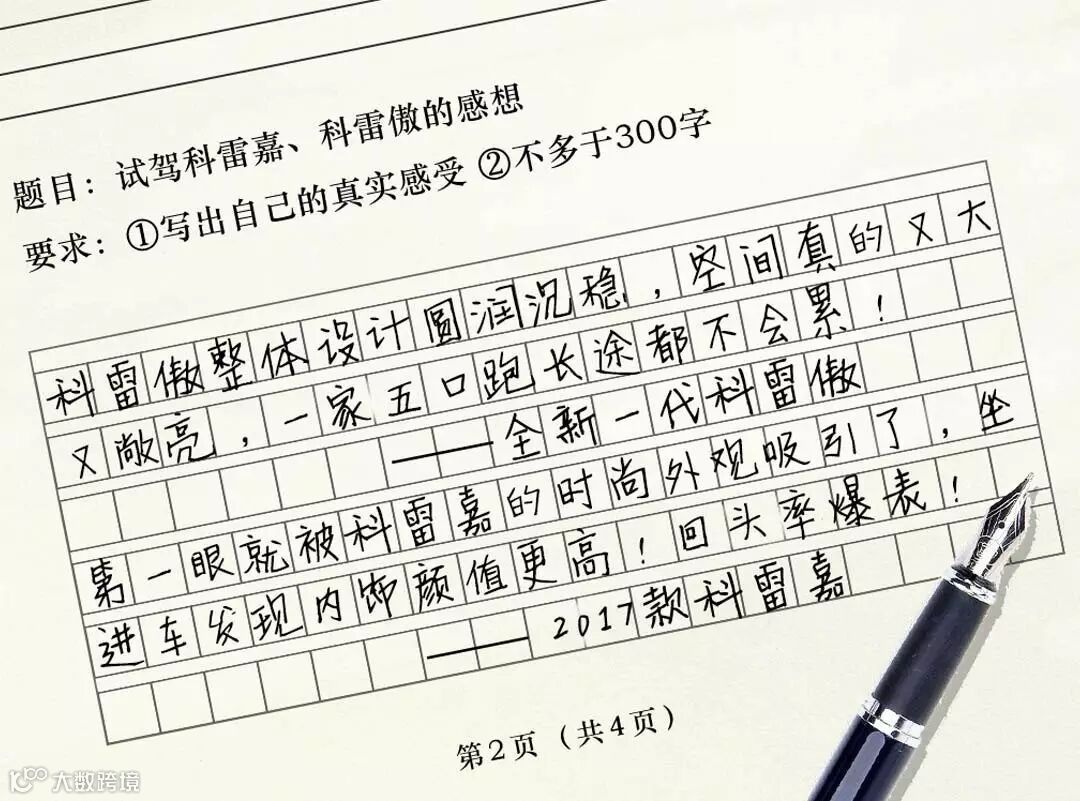 题目：试驾科雷嘉、科雷傲的感想
要求：①写出自己的真实感受 ②不多于300字
科雷傲整体设计圆润沉稳，空间真的又大
又敞亮，一家五口跑长途都不会累！
——全新一代科雷傲
第一眼就被科雷嘉的时尚外观吸引了，坐
进车发现内饰颜值更高！回头率爆表！
——2017款科雷嘉
第2页（共4页）
大数跨境